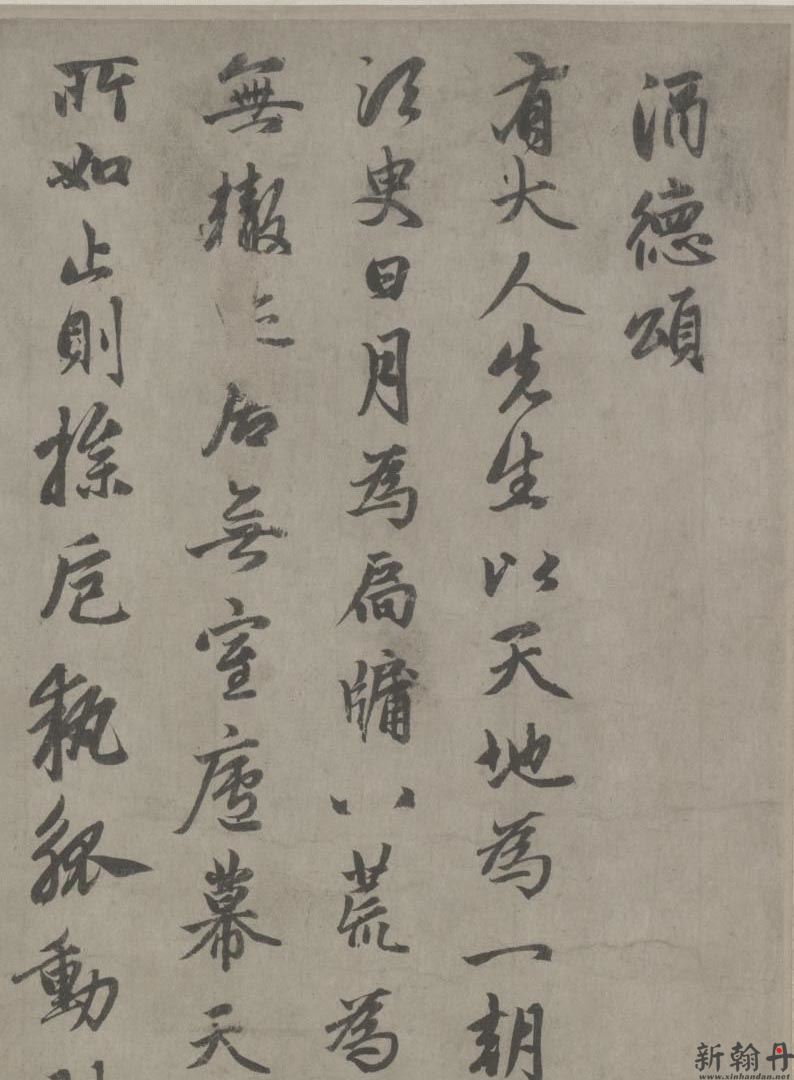 酒德頌
有大人先生以天地為一朝
湏臾日月為扃牖八荒為
無轍迹居無室廬幕天
所如止則操卮執觚動
新翰丹
www.xinhandan.net